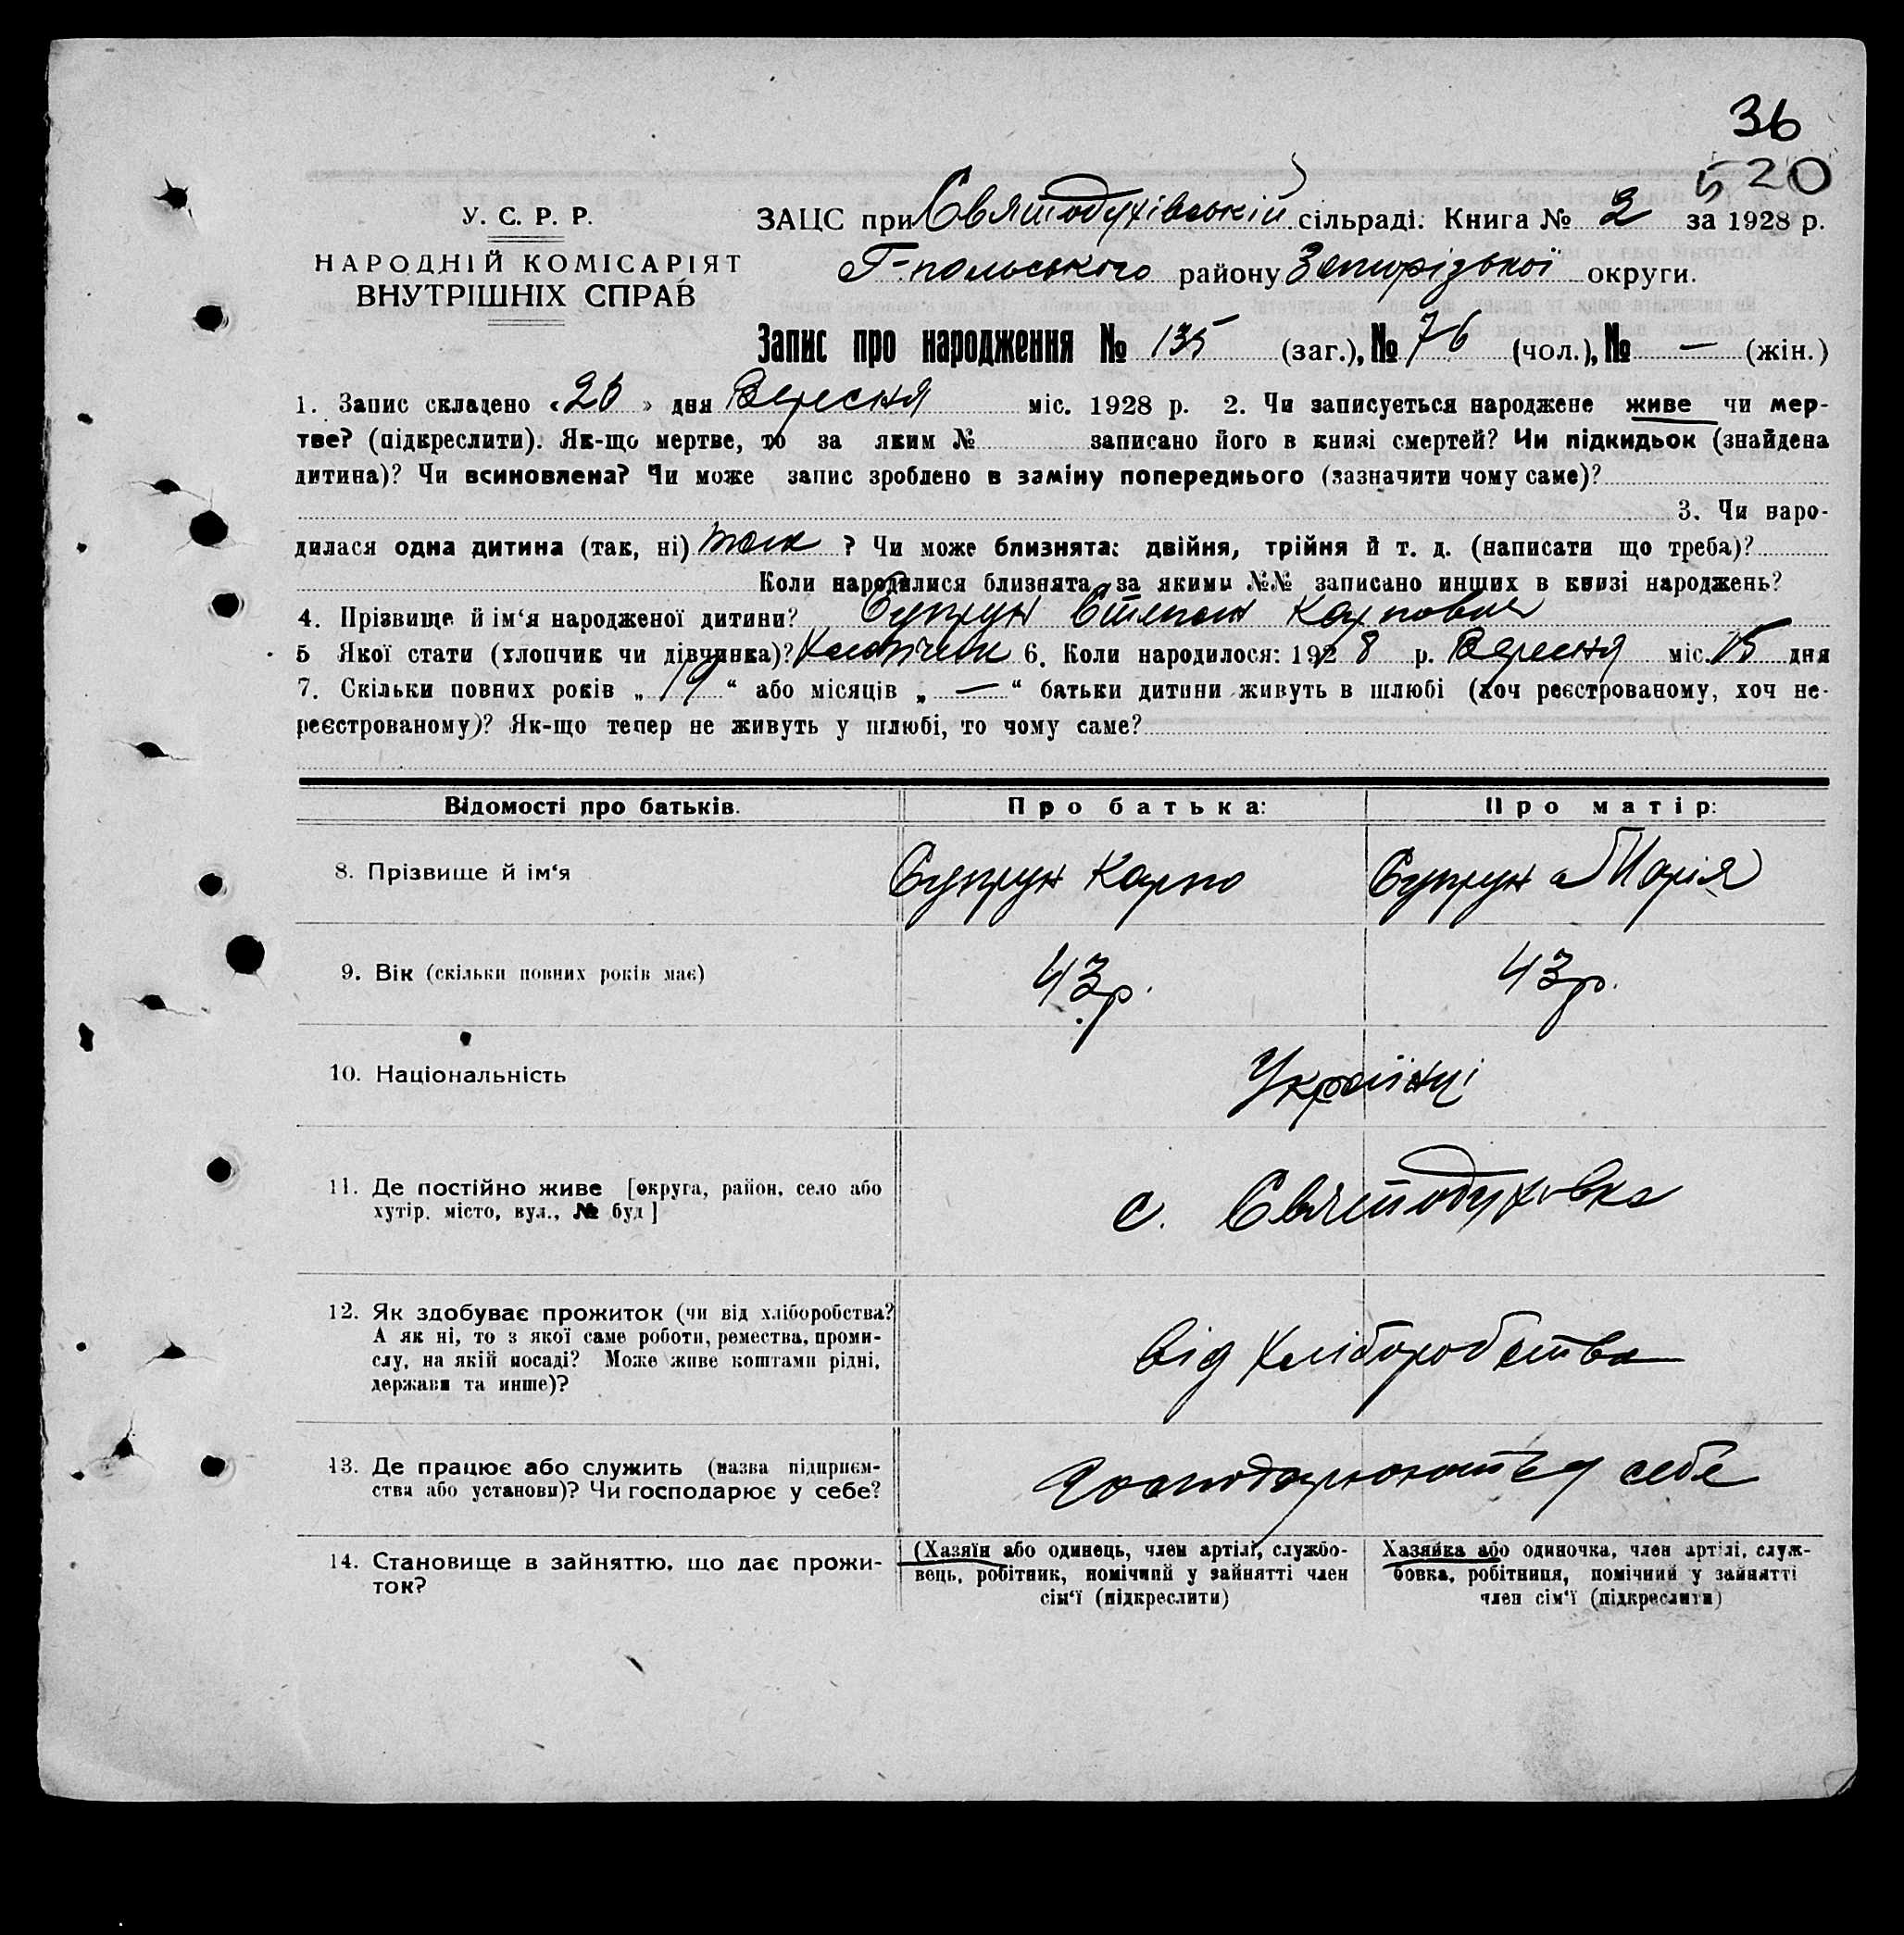 36
520
У. С. Р. Р.
НАРОДНІЙ КОМІСАРІЯТ
ВНУТРІШНІХ СПРАВ
ЗАЦС при Святодухівській сільраді. Книга № 2 за 1928 р.
Г-польського району Запорізької округи.
Запис про народження № 135 (заг.), № 76 (чол.), № — (жін.)
1. Запис складено « » дня Вересня міс. 1928 р. 2. Чи записується народжене живе чи мер-
тве? (підкреслити). Як-що мертве, то за яким № записано його в книзі смертей? Чи підкидьок (знайдена
дитина)? Чи всиновлена? Чи може запис зроблено в заміну попереднього (зазначити чому саме)?
3. Чи наро-
дилася одна дитина (так, ні) так ? Чи може близнята: двійня, трійня й т. д. (написати що треба)?
Коли народилися близнята, за якими №№ записано инших в книзі народжень?
4. Прізвище й ім‘я народженої дитини? Супрун Степан Карпович
5 Якої стати (хлопчик чи дівчинка)? Хлопчик 6. Коли народилося: 1928 р. Вересня міс. 15 дня
7. Скільки повних років „ 19 “ або місяців „ — “ батьки дитини живуть в шлюбі (хоч реєстрованому, хоч не-
реєстрованому)? Як-що тепер не живуть у шлюбі, то чому саме?
Відомості про батьків. Про батька: Про матір:
8. Прізвище й ім‘я Супрун Карпо Супрун Марія
9. Вік (скільки повних років має) 43 р. 43 р.
10. Національність Українці
11. Де постійно живе [округа, район, село або
хутір. місто, вул., № буд ] с. Святодуховка
12. Як здобуває прожиток (чи від хліборобства?
А як ні, то з якої саме роботи, ремества, проми-
слу, на якій посаді? Може живе коштами рідні,
держави та инше)? від хліборобства
13. Де працює або служить (назва підприєм-
ства або установи)? Чи господарює у себе? Господарюють у себе
14. Становище в зайняттю, що дає прожи-
ток?
(Хазяїн або одинець, член артілі, службо-
вець, робітник, помічний у зайнятті член
сім‘ї (підкреслити)
Хазяйка або одиночка, член артілі, служ-
бовка, робітниця, помічний у зайнятті
член сім‘ї (підкреслити)